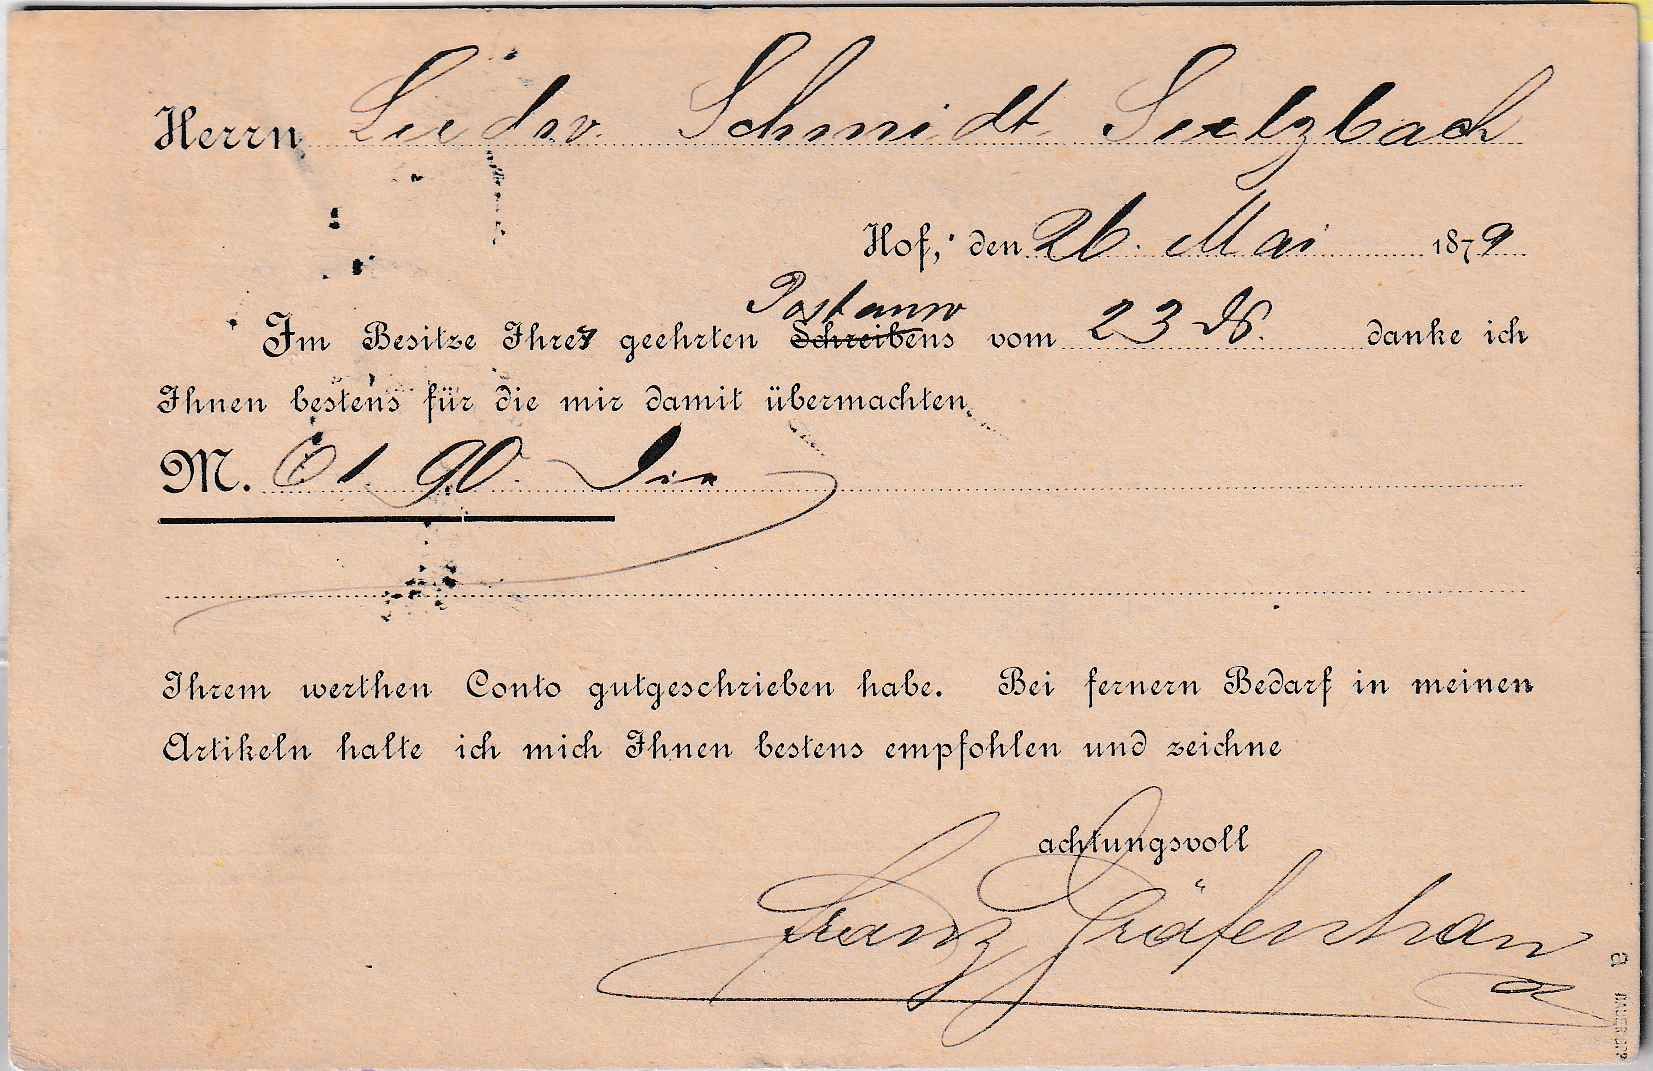 Herrn Ludw. Schmidt Sulzbach
Hof, den 26. Mai 1879
Postanw
Im Besitze Ihrer geehrten Schreibens vom 23 ds. danke ich
Ihnen bestens für die mir damit übermachten
M. 61. 90.
Ihrem werthen Conto gutgeschrieben habe. Bei fernern Bedarf in meinen
Artikeln halte ich mich Ihnen bestens empfohlen und zeichne
achtungsvoll
Franz Gräfenhan
a